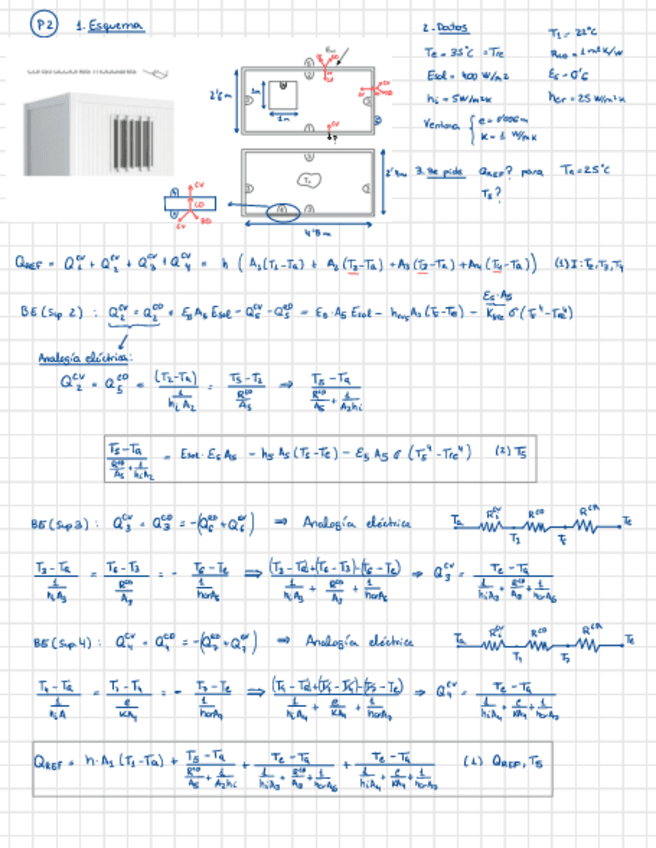 P2 1. Esquema
construcciones modulares
2'6m
1m
1m
2'4m
4'8m
CV
CD
RD
CV
2. Datos
Te = 35°C = Tre
Esol = 400 W/m²
hi = 5 W/m²K
Ventana { e = 0'006m
K = 1 W/mK
T1 = 22°C
ε5 = 0'6
hcr = 25 W/m²K
3. Se pide QREF? para Ta = 25°C
T5?
QREF = Q1^CV + Q2^CV + Q3^CV + Q4^CV = h (A1(T1-Ta) + A2(T2-Ta) + A3(T3-Ta) + A4(T4-Ta)) (1) I: T2, T3, T4
BE (Sup 2) : Q2^CV = Q2^CD = E5 A5 Esol - Q5^CV - Q5^RD = E5·A5 Esol - h A5 (T5-Te) - σ(T5^4 - Tre^4)
Analogía eléctrica:
Q2^CV = Q5^CD = (T2-Ta) / (1/(hi A2)) = (T5-T2) / (R^CD/A5) ⇒ (T5-Ta) / (R^CD/A5 + 1/(A2hi))
(T5-Ta) / (R^CD/A5 + 1/(hiA2)) = Esol·E5A5 - h5 A5 (T5-Te) - E5 A5 σ (T5^4 - Tre^4) (2) T5
BE (Sup 3) : Q3^CV = Q3^CD = -(Q6^RD + Q6^CV) ⇒ Analogía eléctrica
Ta Ri^CV R^CD R^CR Te
T3 T6
(T3-Ta) / (1/(hiA3)) = (T6-T3) / (R^CD/A3) = - (T6-Te) / (1/(hcrA6)) ⇒ ((T3-Ta)+(T6-T3)-(T6-Te)) / (1/(hiA3) + R^CD/A3 + 1/(hcrA6)) ⇒ Q3^CV = (Te-Ta) / (1/(hiA3) + R^CD/A3 + 1/(hcrA6))
BE (Sup 4) : Q4^CV = Q4^CD = -(Q7^RD + Q7^CV) ⇒ Analogía eléctrica
Ta Ri^CV R^CD R^CR Te
T4 T7
(T4-Ta) / (1/(hiA)) = (T7-T4) / (e/(KA4)) = - (T7-Te) / (1/(hcrA7)) ⇒ ((T4-Ta)+(T7-T4)-(T7-Te)) / (1/(hiA4) + e/(KA4) + 1/(hcrA7)) ⇒ Q4^CV = (Te-Ta) / (1/(hiA4) + e/(KA4) + 1/(hcrA7))
QREF = h·A1 (T1-Ta) + (T5-Ta) / (R^CD/A5 + 1/(A2hi)) + (Te-Ta) / (1/(hiA3) + R^CD/A3 + 1/(hcrA6)) + (Te-Ta) / (1/(hiA4) + e/(KA4) + 1/(hcrA7)) (1) QREF, T5